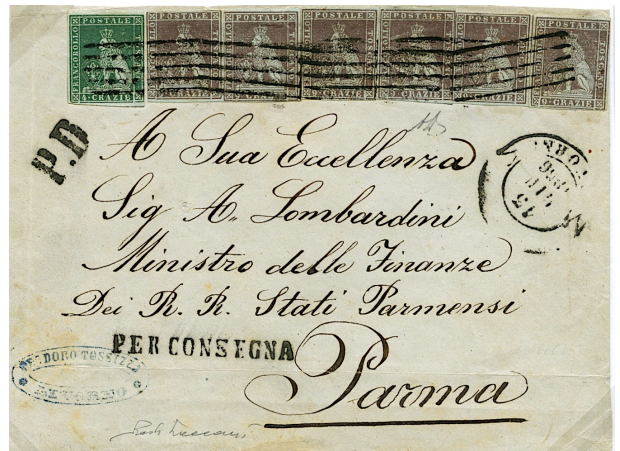 FRANCOBOLLO POSTALE TOSCANO 4 CRAZIE
POSTALE 9 CRAZIE
POSTALE 9 CRAZIE
POSTALE 9 CRAZIE
POSTALE CRAZIE
POSTALE 9 CRAZIE
POSTALE 9 CRAZIE
P.D
A Sua Eccellenza
Sig A,, Lombardini
Ministro delle Finanze
Dei R. R. Stati Parmensi
PER CONSEGNA
Parma
DORO TOSSIZZA
LIVORNO
15